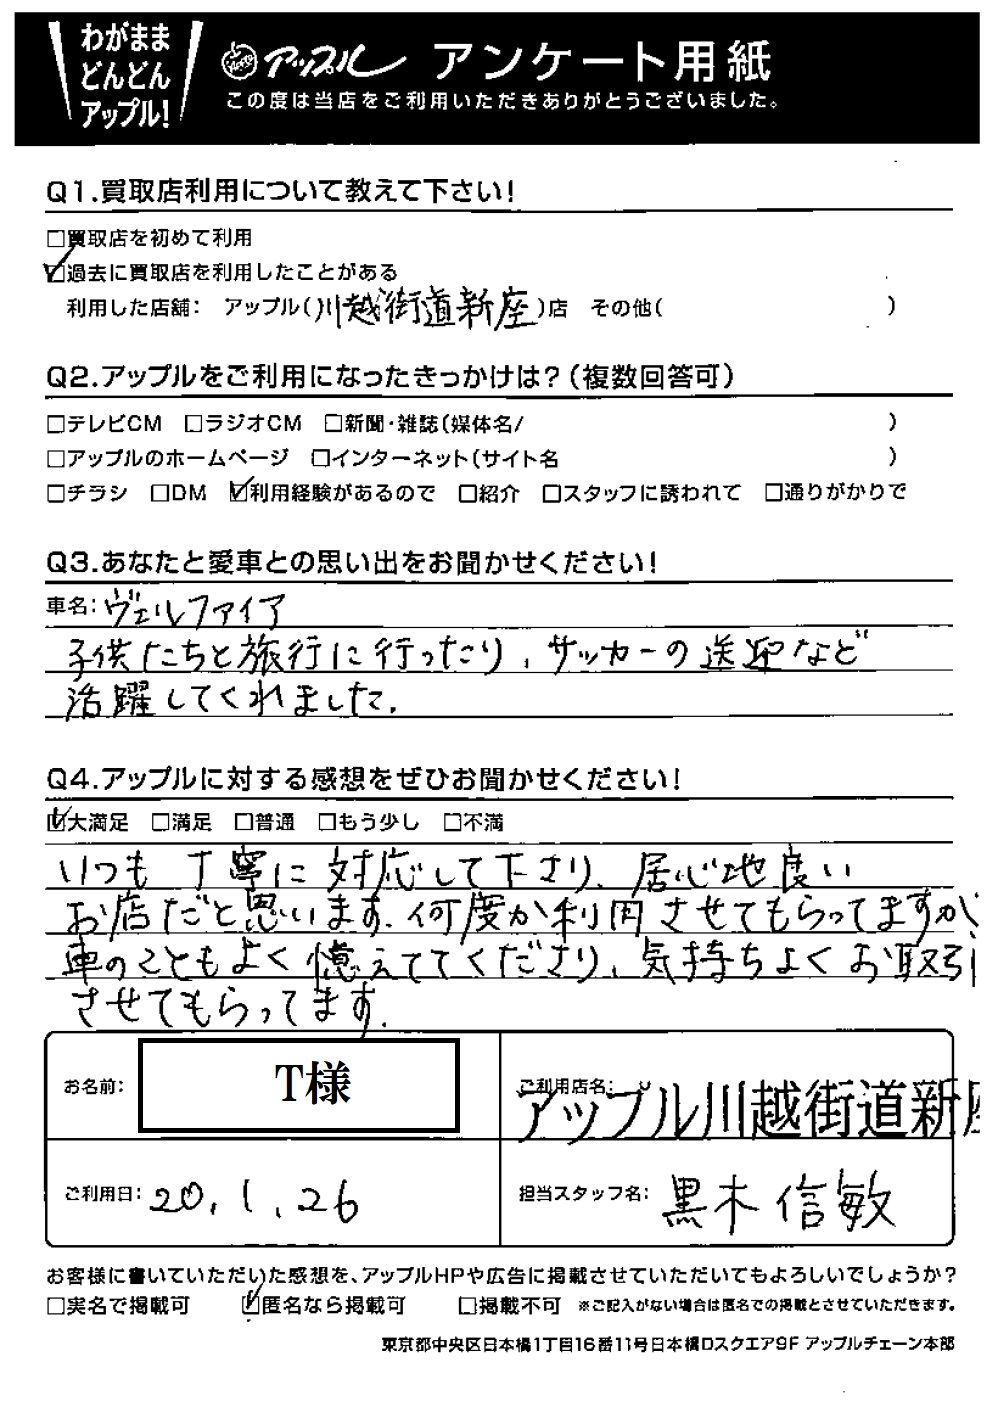 わがまま
どんどん
アップル!
アップル アンケート用紙
この度は当店をご利用いただきありがとうございました。
Q1.買取店利用について教えて下さい!
□買取店を初めて利用
☑過去に買取店を利用したことがある
利用した店舗: アップル(川越街道新座)店 その他( )
Q2.アップルをご利用になったきっかけは?(複数回答可)
□テレビCM □ラジオCM □新聞・雑誌(媒体名/ )
□アップルのホームページ □インターネット(サイト名 )
□チラシ □DM ☑利用経験があるので □紹介 □スタッフに誘われて □通りがかりで
Q3.あなたと愛車との思い出をお聞かせください!
車名:ヴェルファイア
子供たちと旅行に行ったり、サッカーの送迎など
活躍してくれました.
Q4.アップルに対する感想をぜひお聞かせください!
☑大満足 □満足 □普通 □もう少し □不満
いつも丁寧に対応して下さり、居心地良い
お店だと思います.何度か利用させてもらってますが、
車のこともよく憶えててくださり、気持ちよくお取引
させてもらってます.
お名前: T様
ご利用店名: アップル川越街道新座
ご利用日: 20.1.26
担当スタッフ名: 黒木信敏
お客様に書いていただいた感想を、アップルHPや広告に掲載させていただいてもよろしいでしょうか?
□実名で掲載可 ☑匿名なら掲載可 □掲載不可 ※ご記入がない場合は匿名での掲載とさせていただきます。
東京都中央区日本橋1丁目16番11号日本橋Dスクエア9F アップルチェーン本部